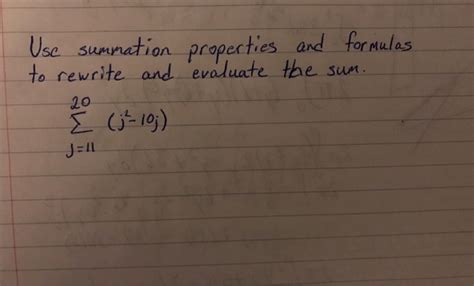 Use summation properties and formulas
to rewrite and evaluate the sum.
20
Σ (j²-10j)
j=11